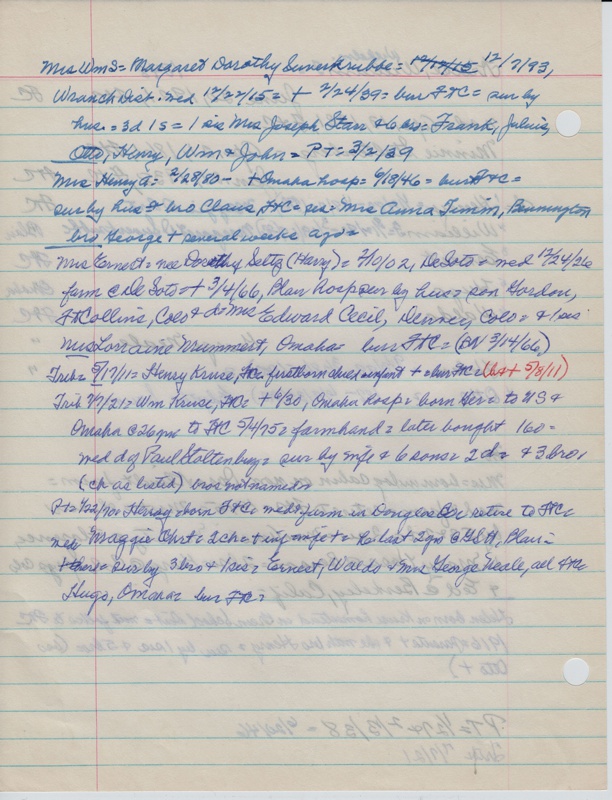 Mrs Wm S = Margaret Dorothy Suverkrubbe = 12/17/15 12/7/93,
Wranch Dist. med 12/27/15 = + 2/24/39 = bur FtC = sur by
hus. = 3d 1s = 1 sis Mrs Joseph Starr & 6 bro = Frank, Julius,
Otto, Henry, Wm & John = PT = 3/2/39
Mrs Henry G = 2/28/80 - + Omaha hosp = 6/18/46 = bur FtC =
sur by hus & bro Claus, FtC = sis = Mrs Anna Timm, Bennington
bro George + several weeks ago =
Mrs Ernest = nee Dorothy Seltz (Harry) = 2/10/02, DeSoto = med 12/24/26
farm @ De Soto = + 3/4/66, Blair hosp sur by hus = son Gordon,
Ft Collins, Colo & d = Mrs Edward Cecil, Denver, Colo = & 1 sis
Mrs Lorraine Mummert, Omaha = bur FtC = (EN 3/14/66)
Trib = 5/17/11 = Henry Kruse, FtC firstborn child infant + = bur FtC = (bct 5/8/11)
Trib 7/7/21 = Wm Kruse, FtC = + 6/30, Omaha hosp = born Ger = to US &
Omaha @ 26 yrs to FtC 5/4/75 = farmhand = later bought 160 =
med d of Paul Stoltenberg = sur by wife & 6 sons = 2 d = & 3 bro,
(ch as listed) bros not named =
PT = 1/22/70 = Henry born FtC = med & farm in Douglas Co = retire to FtC =
med Maggie Ohrt = 2 ch = + inf = wife + = to last 2 yrs @ , Blair =
sur by 3 bro & 1 sis = Ernest, Waldo & Mrs George Neale, all FtC
Hugo, Omaha = bur FtC =